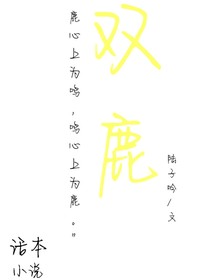 双鹿
鹿心上为鸣，鸣心上为鹿。”
陆子吟/文
话本
小说